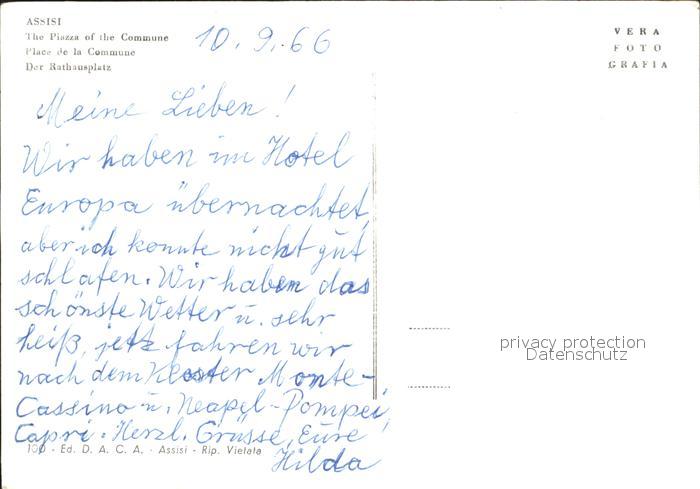 ASSISI
The Piazza of the Commune
Place de la Commune
Der Rathausplatz
10.9.66
VERA
FOTO
GRAFIA
Meine Lieben!
Wir haben im Hotel
Europa übernachtet,
aber ich konnte nicht gut
schlafen. Wir haben das
schönste Wetter u. sehr
heiß, jetz fahren wir
nach dem Kloster Monte-
Cassino u. Neapel-Pompei,
Capri. Herzl. Grüsse, Eure
Hilda
100 - Ed. D. A. C. A. - Assisi - Rip. Vietata
privacy protection
Datenschutz